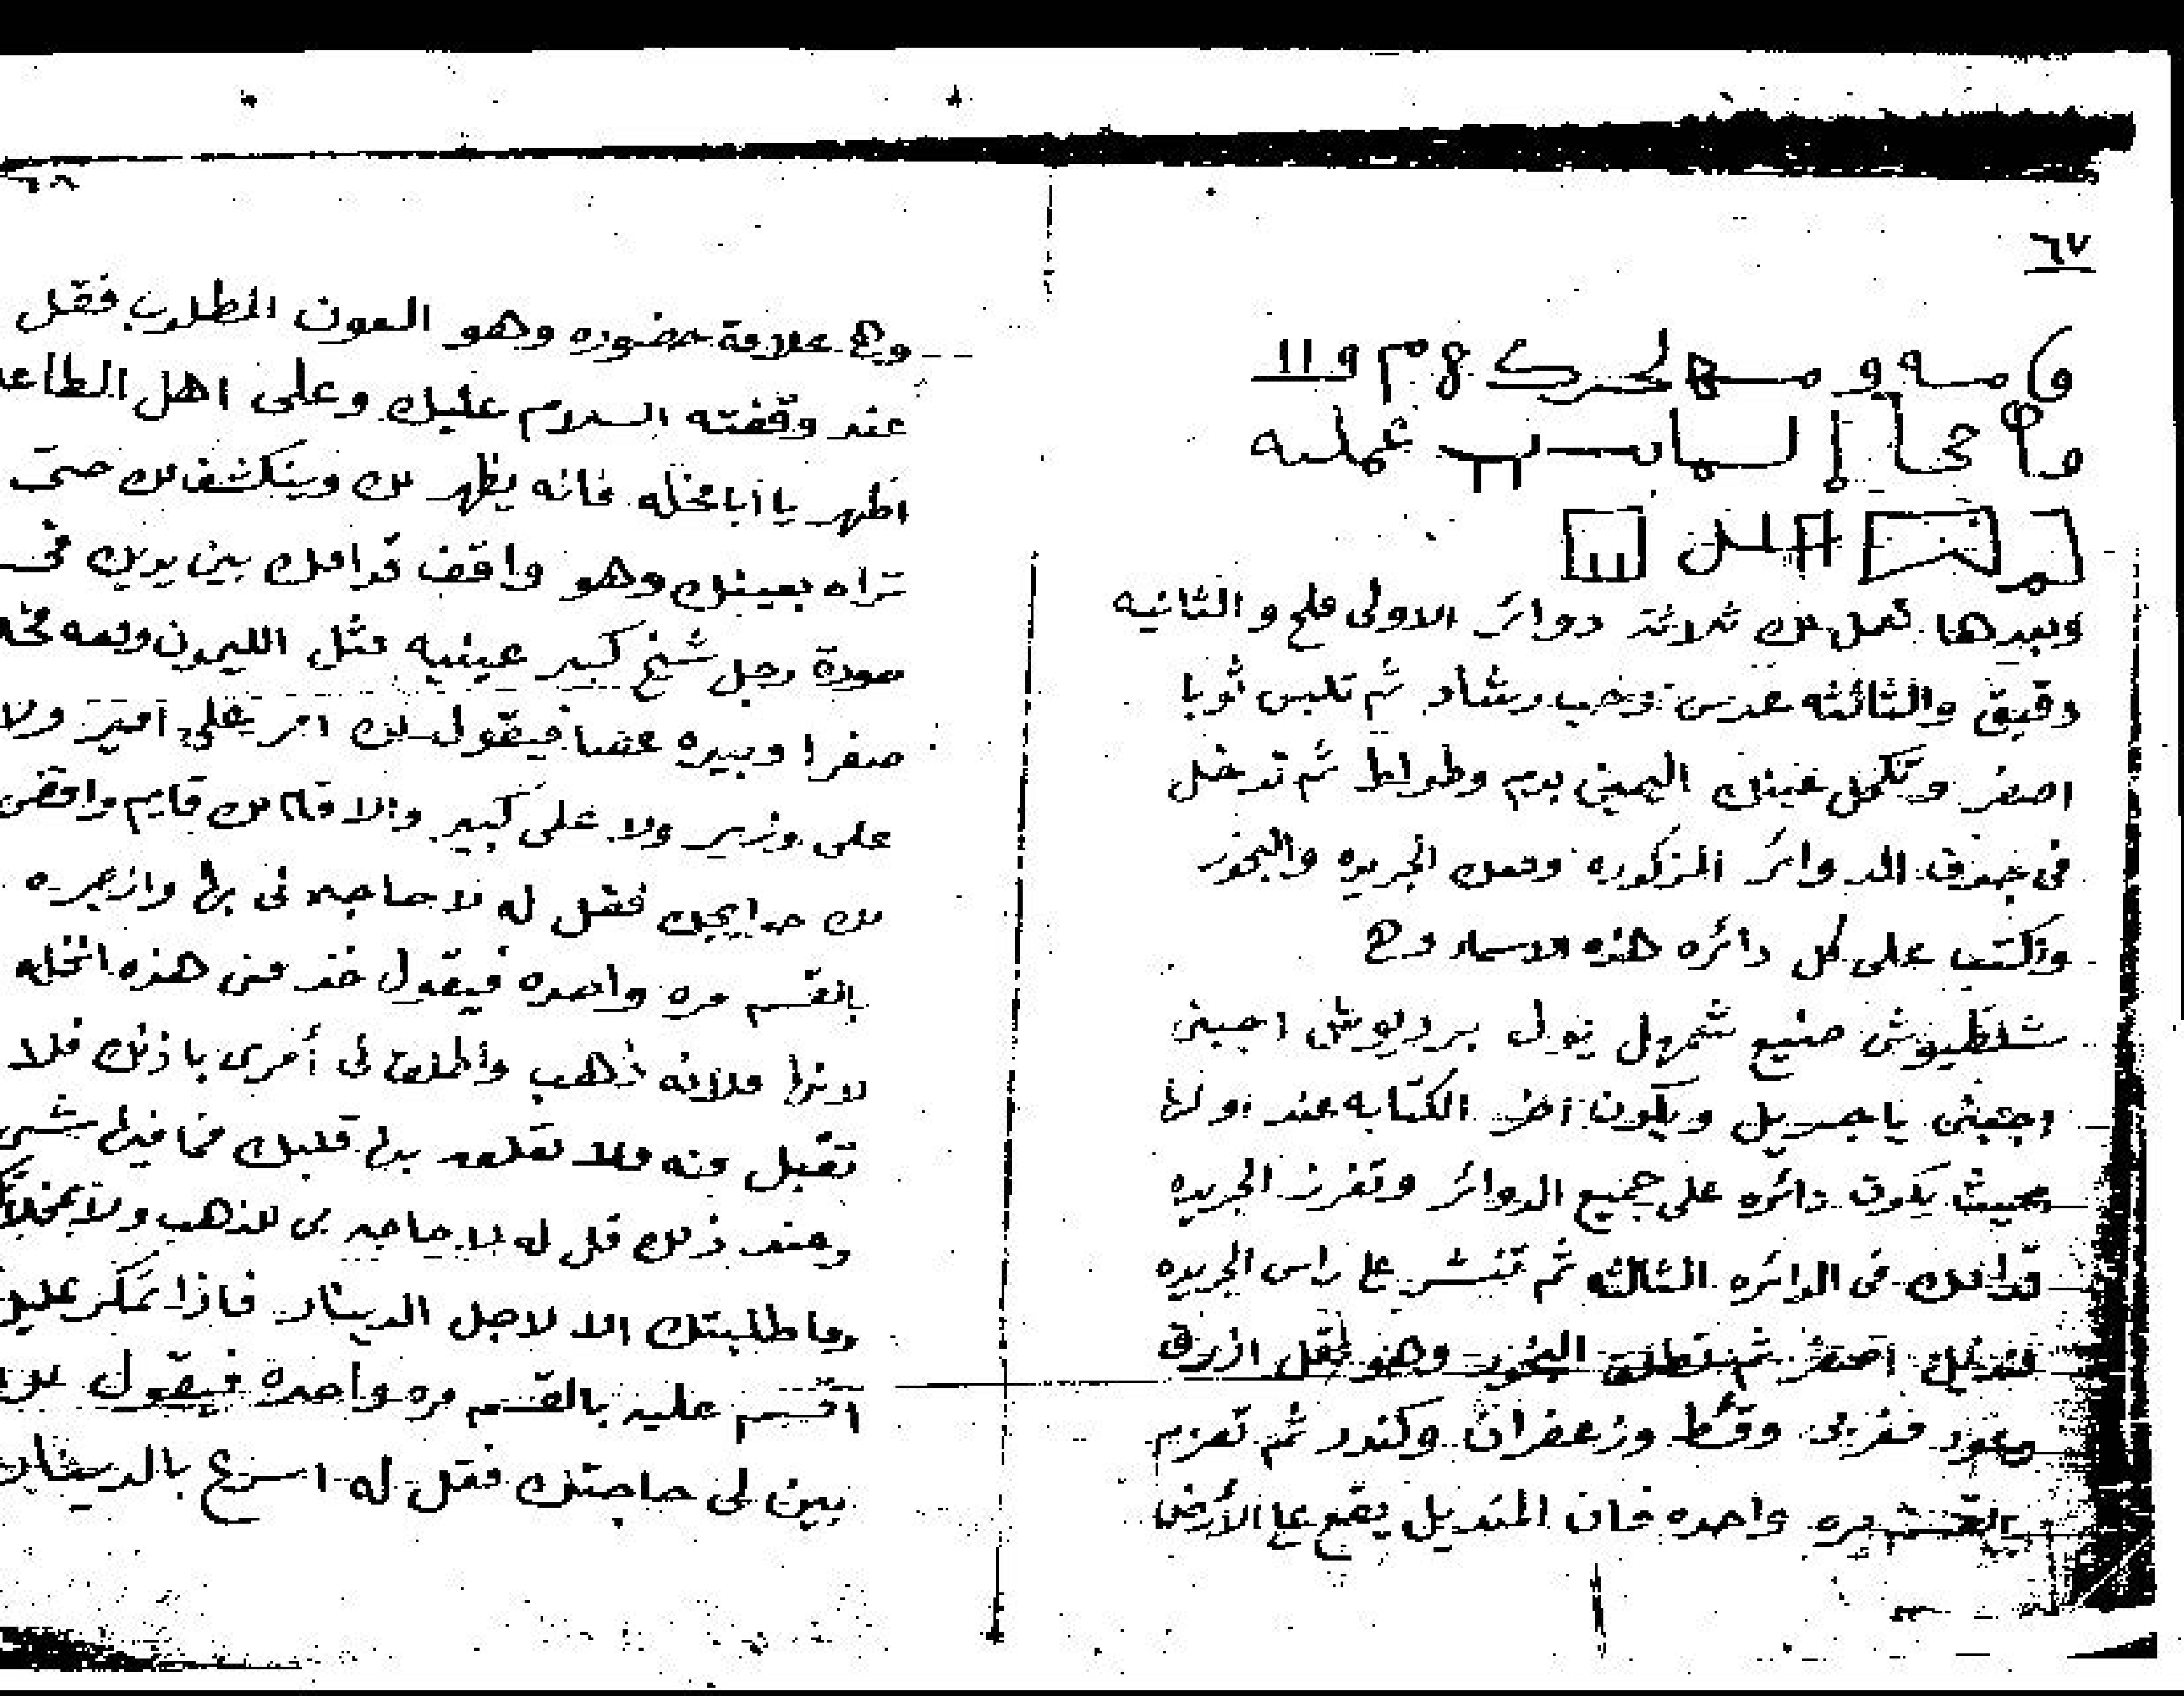 ٦٧
وبعدها تعمل لك ثلاثة دوائر الاولى ملح والثانيه
دقيق والثالثه عدس وحب رشاد ثم تلبس ثوبا
اصفر وتكحل عينك اليمين بدم وطواط ثم تدخل
فى جوف الدوائر المزكوره ومعك الجريده والبخور
واكتب على كل دائره هذه الاسماء وهى
شلظيوش صنيع شمهيل يول برديوش اجبنى
اجبنى يا جبريل ويكون اخر الكتابه عند اولها
بحيث يكون دائره على جميع الدوائر وتغرز الجريده
قدامك فى الدائره الثالثه ثم تنشر على راس الجريده
منديل اصفر ثم تطلق البخور وهو مقل ازرق
وعود مغربى وقسط وزعفران وكندر ثم تعزم
بالقسم مره واحده فان المنديل يقع على الأرض
٦٨
وهى علامة حضوره وهو العون المطلوب فقل
عند وقفته السلام عليك وعلى اهل الطاعه
اظهر يا أبا مخله فانه يظهر لك وينكشف لك حتى
تراه بعينك وهو واقف قدامك بين يديك فى
صورة رجل شيخ كبير عينيه مثل الليمون ومعه
صفرا وبيده عصا فيقول لك امر على امير ولا
على وزير ولا على كبير والا قم لك قايم واقض
لك حوايجك فقل له لا حاجه لى بها وازجره
بالقسم مره واحده فيقول خذ من هذه المخله
لانها ملانه ذهب واطلق لى أمرى باذنك فلا
تقبل منه ولا تعلق بها قلبك فما فيها شى
وعند ذلك قل له لا حاجه لى للذهب ولا
وما طلبتك الا لاجل الدينار فاذا تمكر عليك
اقسم عليه بالقسم مره واحده فيقول لك
بين لى حاجتك فقل له اسرع بالدينار